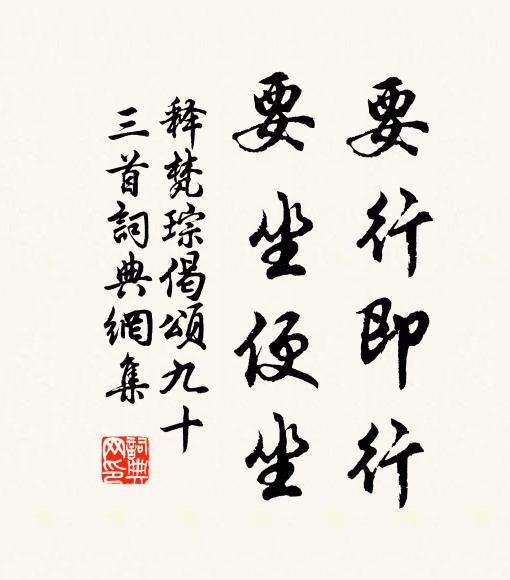 要行即行
要坐便坐
释梵琮偈頌九十
三首詞典網集
詞典
网印